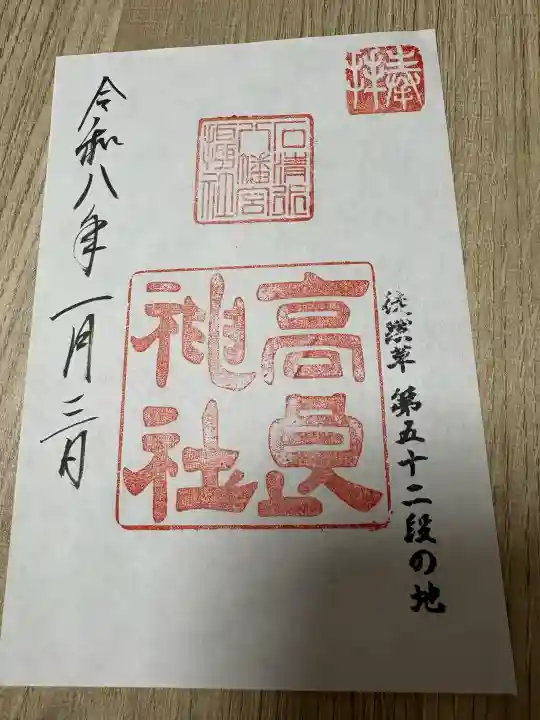 奉拝
石清水
八幡宮
摂社
徒然草 第五十二段の地
高良
神社
令和八年 一月三日